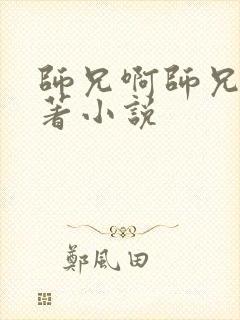 師兄啊師兄
著小說
鄭風田